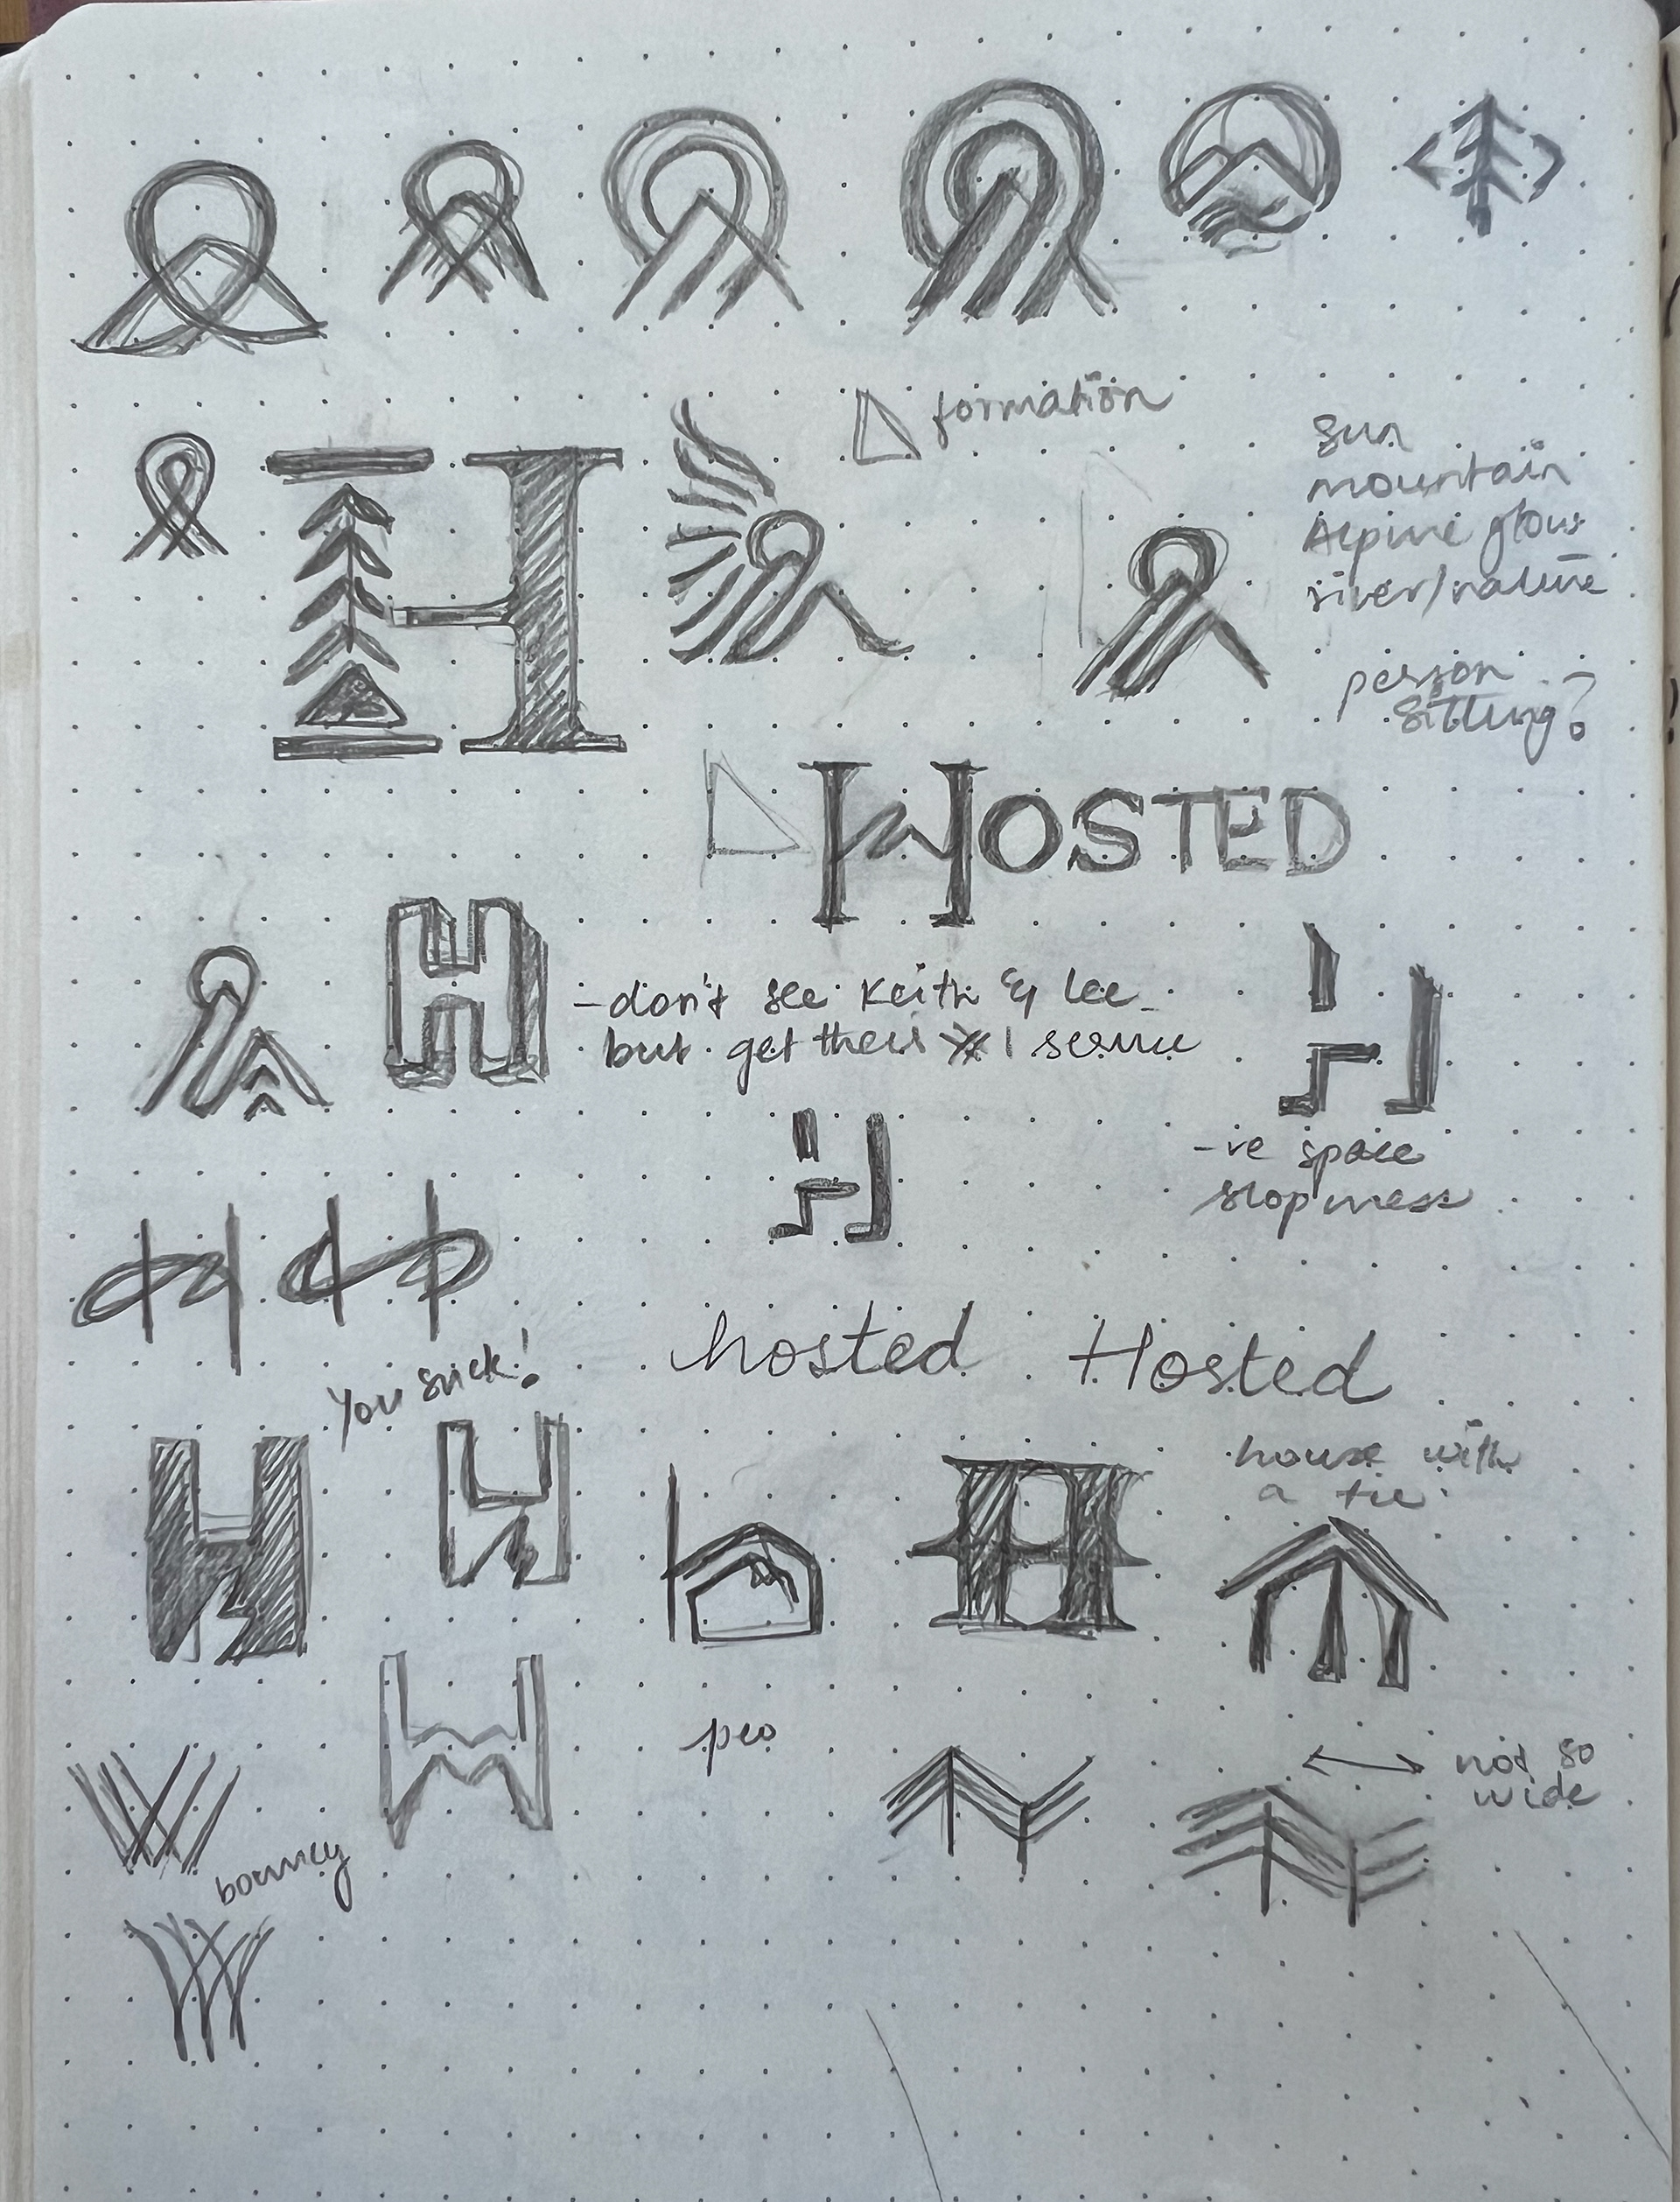 formation
sun
mountain
Alpine glow
river/nature
person
sitting?
HOSTED
-don't see Keith & Lee
but get their #1 service
-ve space
slopiness
You suck!
hosted Hosted
house with
a tie
not so
wide
bouncy